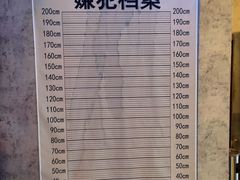 嫌犯档案
200cm 200cm
190cm 190cm
180cm 180cm
170cm 170cm
160cm 160cm
150cm 150cm
140cm 140cm
130cm 130cm
120cm 120cm
110cm 110cm
100cm 100cm
90cm 90cm
80cm 80cm
70cm 70cm
60cm 60cm
50cm 50cm
40cm 40cm